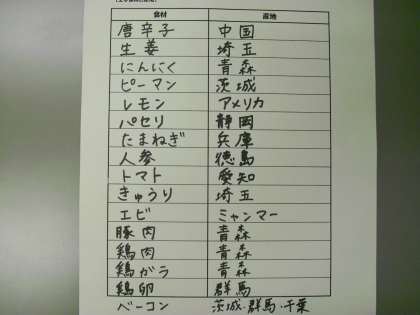 食材 産地
唐辛子 中国
生姜 埼玉
にんにく 青森
ピーマン 茨城
レモン アメリカ
パセリ 静岡
たまねぎ 兵庫
人参 徳島
トマト 愛知
きゅうり 埼玉
エビ ミャンマー
豚肉 青森
鶏肉 青森
鶏ガラ 青森
鶏卵 群馬
ベーコン 茨城・群馬・千葉